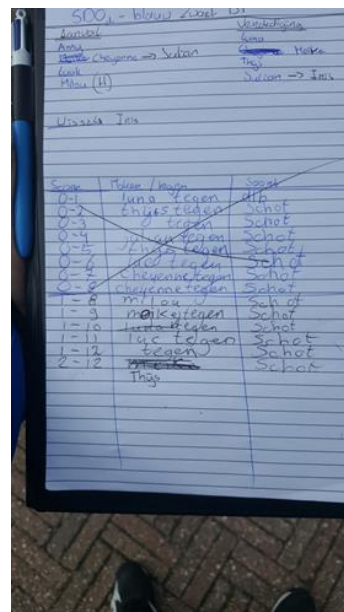 SDO - blauw zwart D1
Aanval Verdediging
Anny Luna
Cheyenne → Sultan Meike
Luuk Thijs
Milou (H) Sultan → Iris
Wissels Iris
Score Maker / tegen Soort
0-1 luna tegen dib
0-2 thijs tegen Schot
0-3 tegen Schot
0-4 tegen Schot
0-5 thijs tegen Schot
0-6 luc tegen Schot
0-7 cheyenne tegen Schot
0-8 cheyenne tegen Schot
1-8 milou Schot
1-9 meike tegen Schot
1-10 tegen Schot
1-11 luc tegen Schot
1-12 tegen Schot
2-12 Schot
Thijs